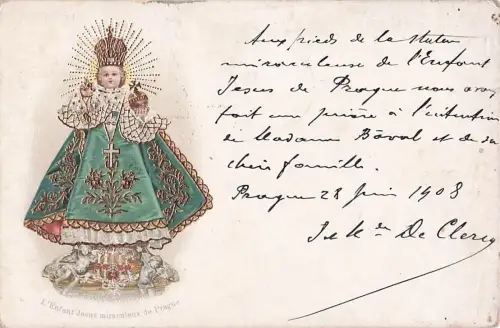 Aux pieds de la statue
miraculeuse de l'Enfant
Jesus de Prague nous avons
fait une prière à l'intention
de Madame Boval et de sa
chère famille.
Prague 28 juin 1908
De Clercq
L'Enfant Jesus miraculeux de Prague